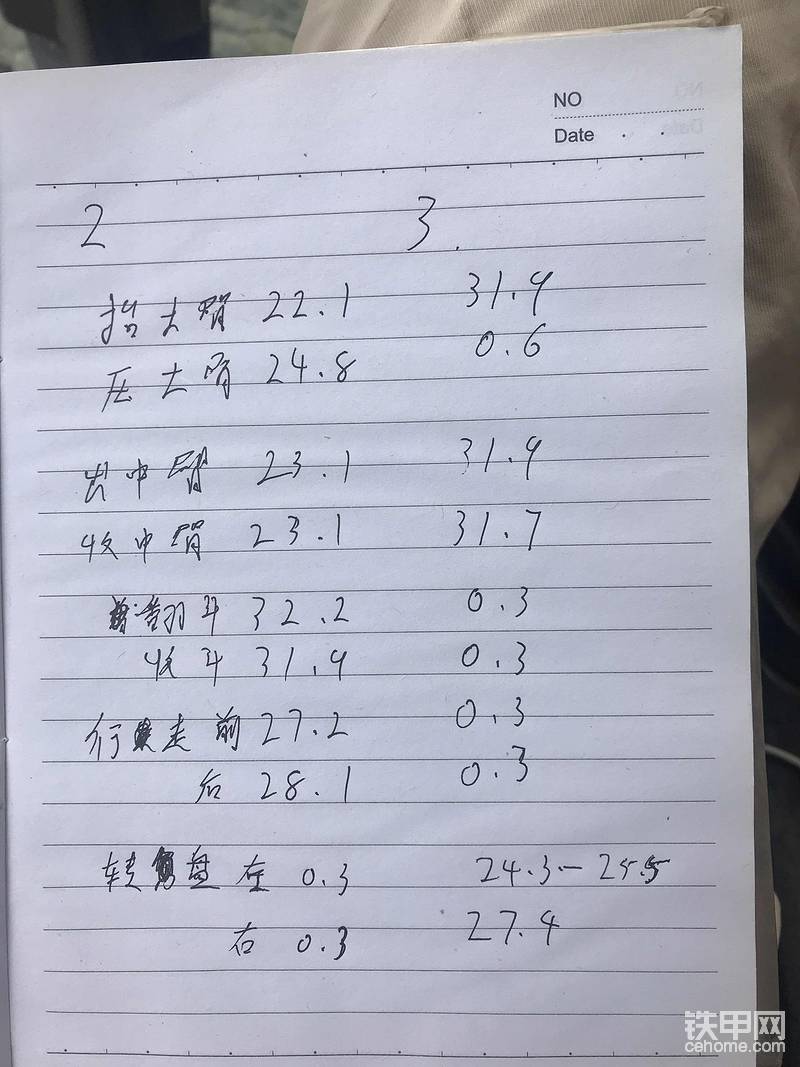 NO
Date
2 3.
抬大臂 22.1 31.9
压大臂 24.8 0.6
出中臂 23.1 31.9
收中臂 23.1 31.7
翻斗 32.2 0.3
收斗 31.9 0.3
行走前 27.2 0.3
后 28.1 0.3
转盘左 0.3 24.3-25.5
右 0.3 27.4
铁甲网
cehome.com